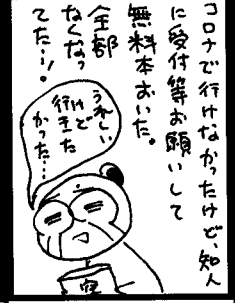 コロナで行けなかったけど、知人
に受付等お願いして
無料本おいた。
全部
なくなっ
てた…！
うれしい
けど
行きた
かった…